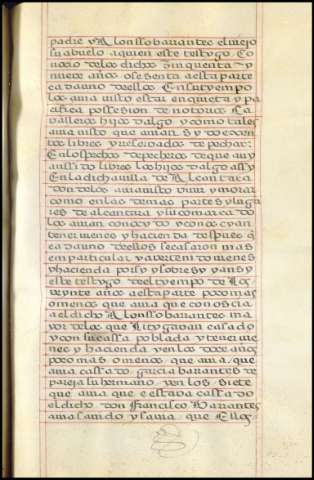 padre y Alonsso barrantes el viejo
su abuelo a quien este testigo co
nocio de los dichos zinquenta y
nueve años o sesenta a esta parte
cada uno dellos En su tyempo
los avia visto estar en quieta y pa
cifica possesion de notorios ca
valleros hijos dalgo y como tales
avia visto que avian sydo exsen
tos libres y reservados de pechar
En los pechos de pecheros de que avi
an sydo libres los hijos dalgo assy
En la dicha villa de Alcantara
donde los avia visto vivir y morar
como en las demas partes y luga
res de alcantara y su comarca do
los avian conoscydo y conoscyan
tener vienes y hacienda despues q
cada uno dellos se casaron mas
em particular y aver tenido vienes
y hacienda por sy y sobre sy y ansy
este testigo de el tyempo de los
veynte años a esta parte poco mas
o menos que avia que conoscia
al dicho Alonsso barrantes ma
yor de los que litygavan casado
y con su cassa poblada y tener vie
nes y hacienda y en los doze años
poco mas o menos que avia que
avia cassado garcia barrantes de
pareja su hermano y en los siete
que avia que estava cassado
el dicho don Francisco Barrantes
avia savido y savia que Ellos